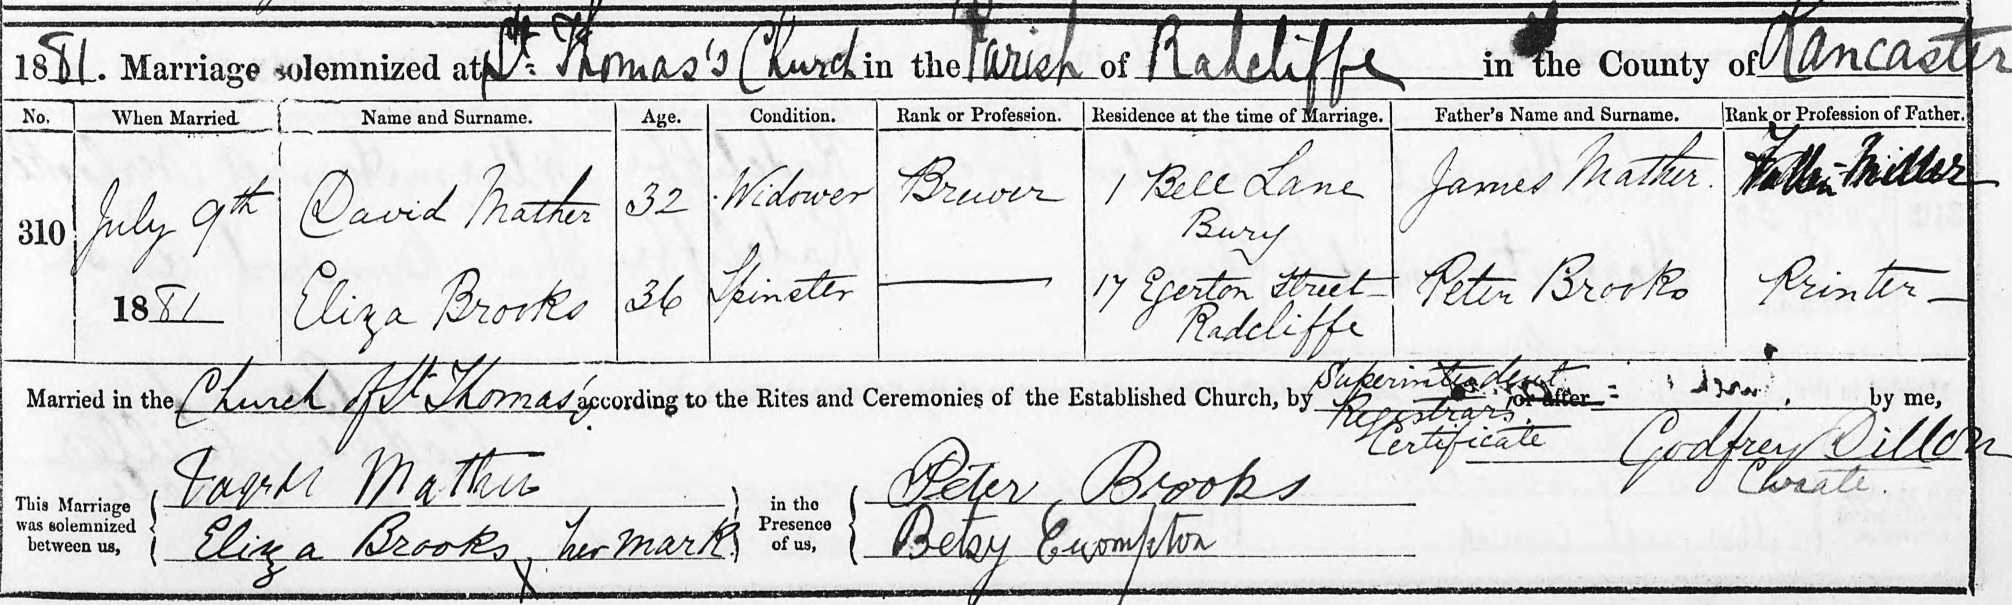 1881. Marriage solemnized at St. Thomas's Church in the Parish of Radcliffe in the County of Lancaster
No. When Married. Name and Surname. Age. Condition. Rank or Profession. Residence at the time of Marriage. Father's Name and Surname. Rank or Profession of Father.
310 July 9th 1881
David Mather 32 Widower Brewer 1 Bell Lane Bury James Mather. Miller
Eliza Brooks 36 Spinster 17 Egerton Street Radcliffe Peter Brooks Printer
Married in the Church of St Thomas's according to the Rites and Ceremonies of the Established Church, by Superintendent Registrars Certificate or after by me,
Godfrey Dillon
Curate.
This Marriage was solemnized between us,
Mather
Eliza Brooks, her mark X
in the Presence of us,
Peter Brooks
Betsy Crompton